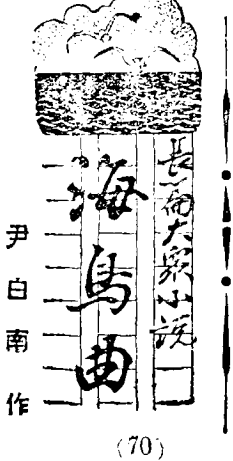 長篇大衆小說
海鳥曲
尹白南作
(70)